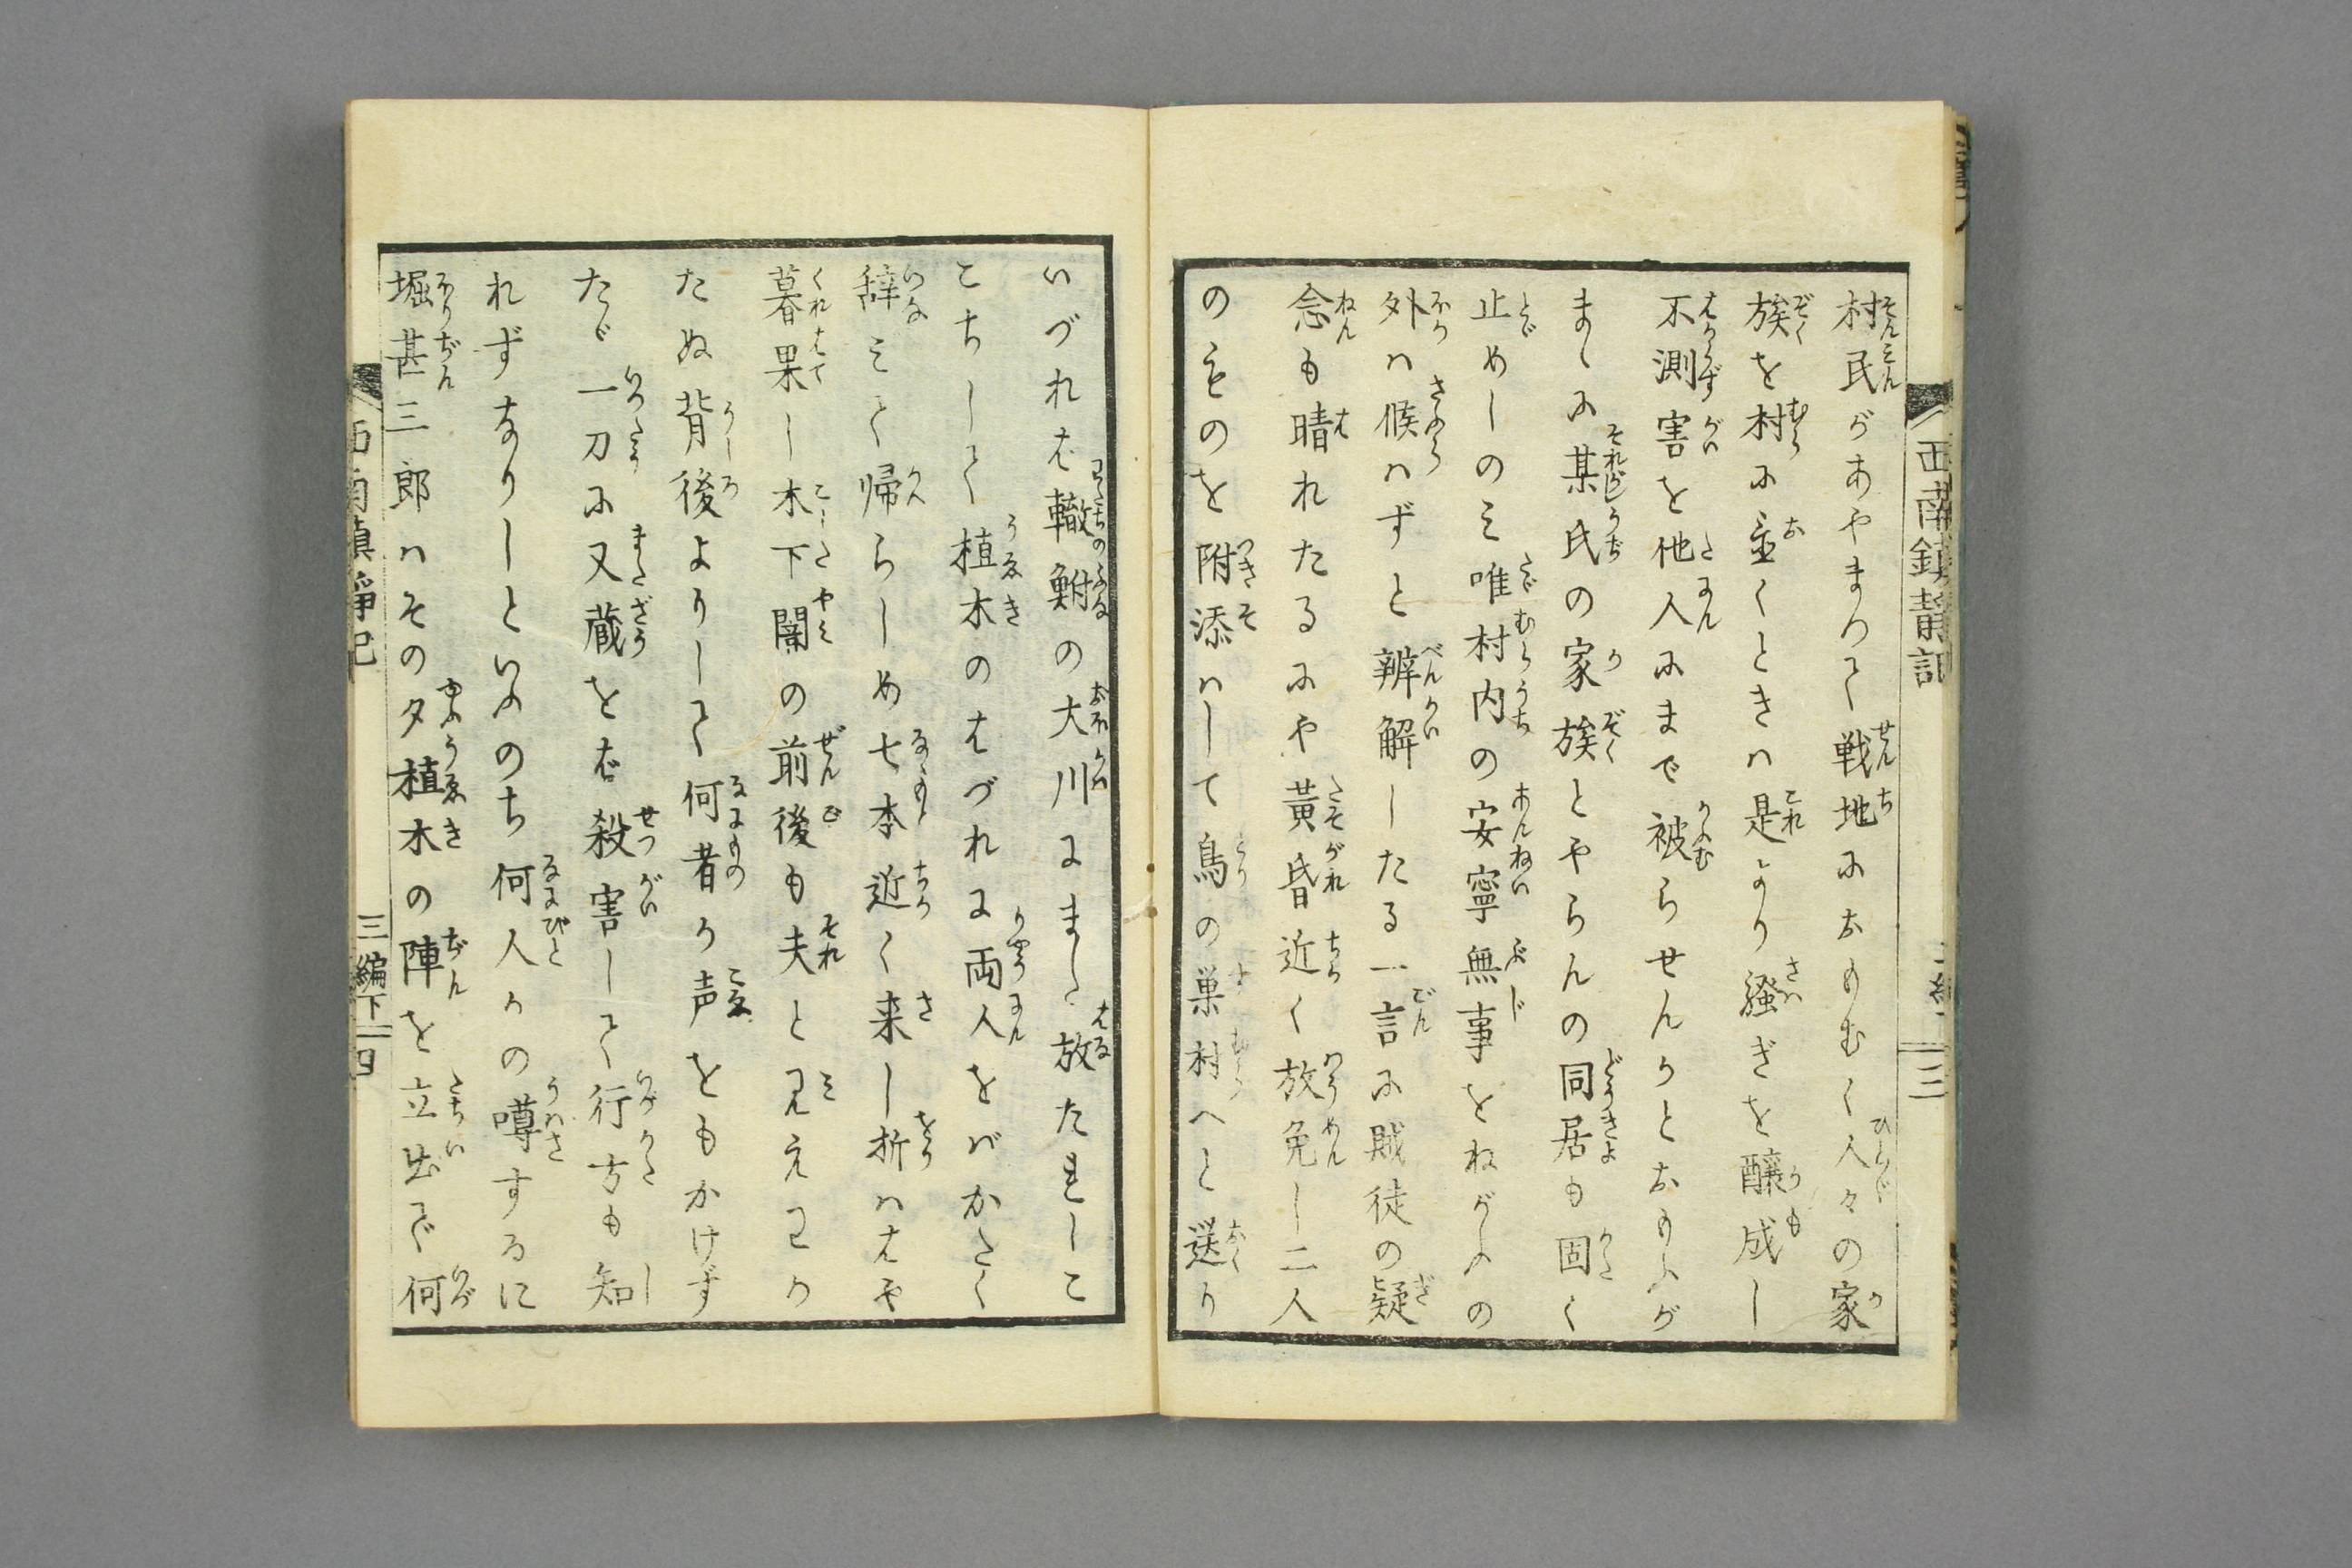 西南鎮静記
三
村民があやまつて戦地におもむく人々の家
族を村に置くときハ是より騒ぎを醸成し
不測害を他人にまで被らせんかとおもふが
まゝに某氏の家族とやらんの同居も固く
止めしのミ唯村内の安寧無事をねがふの
外ハ候ハずと辨解したる一言に賊徒の疑
念も晴れたるにや黄昏近く放免し二人
のものを附添ハして鳥の巣村へと送り
いづれば轍鮒の大川にまた放たれしこ
こちして植木のはづれに両人をばかたく
辞ミて帰らしめ七本近く来し折ハはや
暮果し木下闇の前後も夫と見えわか
たぬ背後よりして何者か声をもかけず
たゞ一刀に又蔵をば殺害して行方も知
れずなりしといふのち何人かの噂するに
堀甚三郎ハその夕植木の陣を立出で何
西南鎮静記
三編下
四